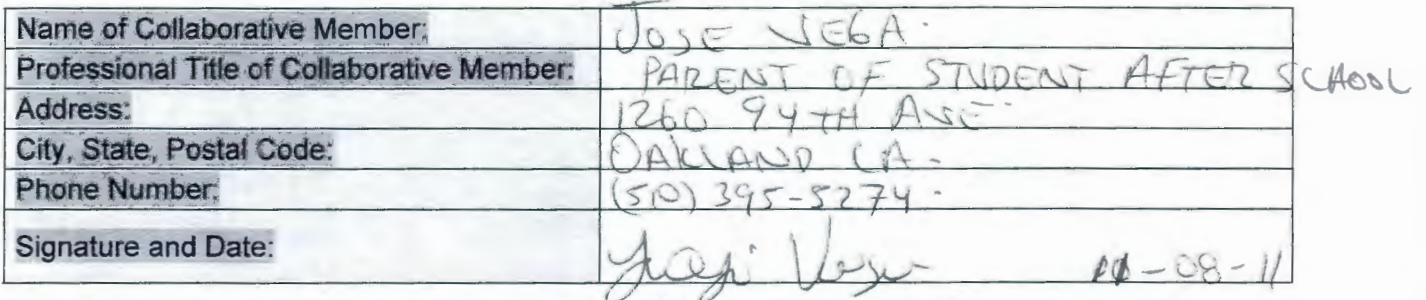 Name of Collaborative Member: JOSE VEGA.
Professional Title of Collaborative Member: PARENT OF STUDENT AFTER SCHOOL
Address: 1260 94TH AVE
City, State, Postal Code: OAKLAND CA.
Phone Number: (510) 395-5274.
Signature and Date: -08-11